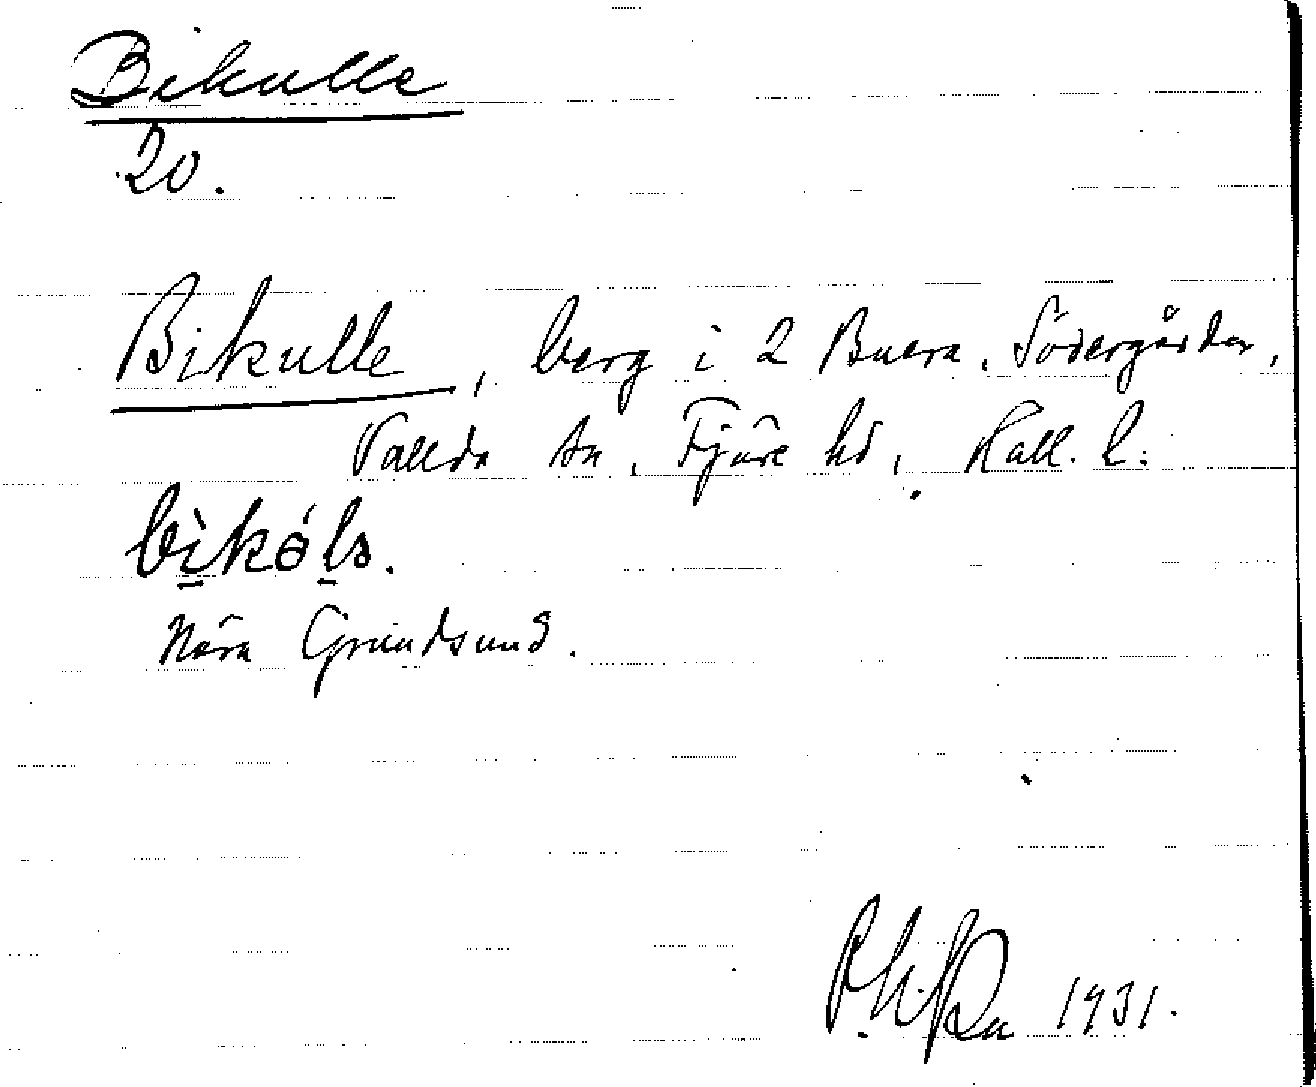 Bikulle
20.
Bikulle, berg i 2 Buera, Södergården,
Vallda sn, Fjäre hd, Hall. l.
bìkól
Nära Grundsund.
1931.